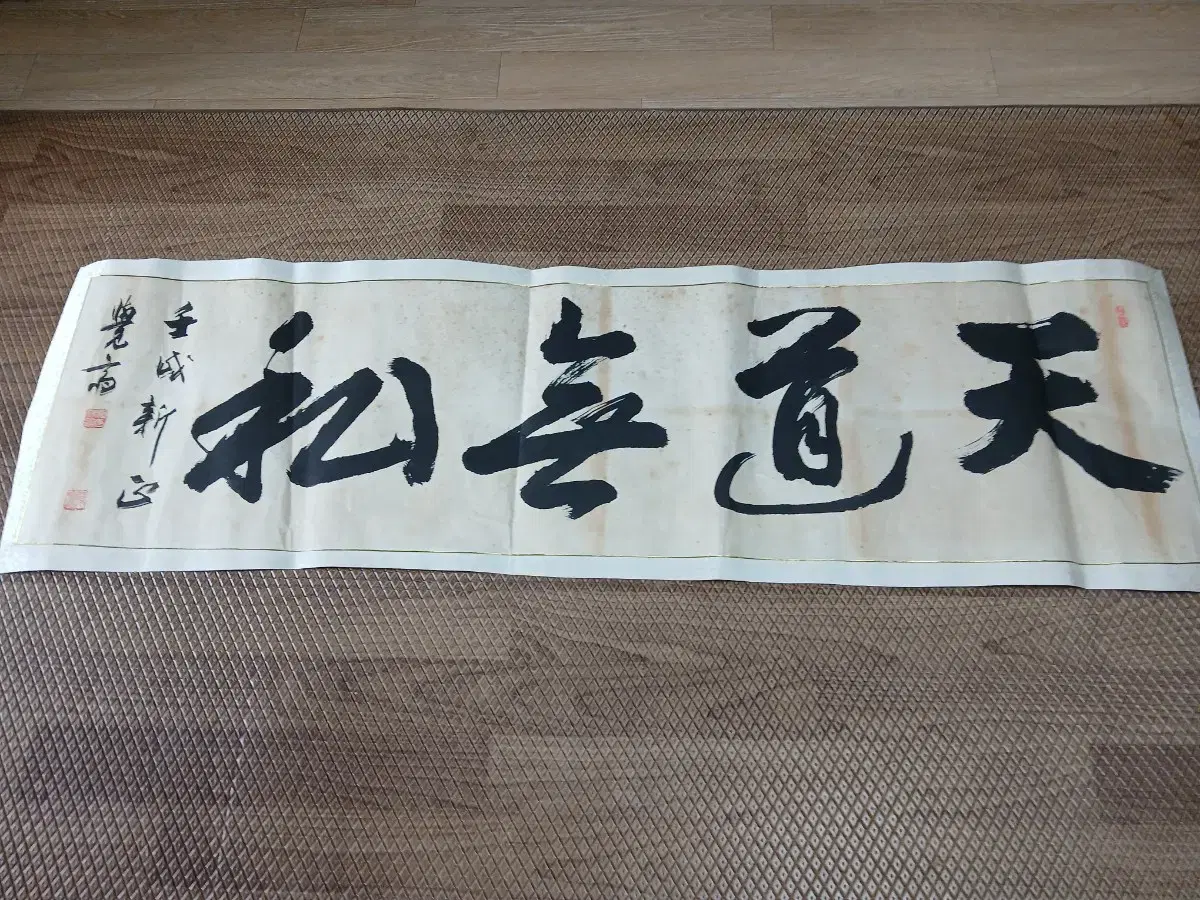 天道無私
壬戌新正
覺